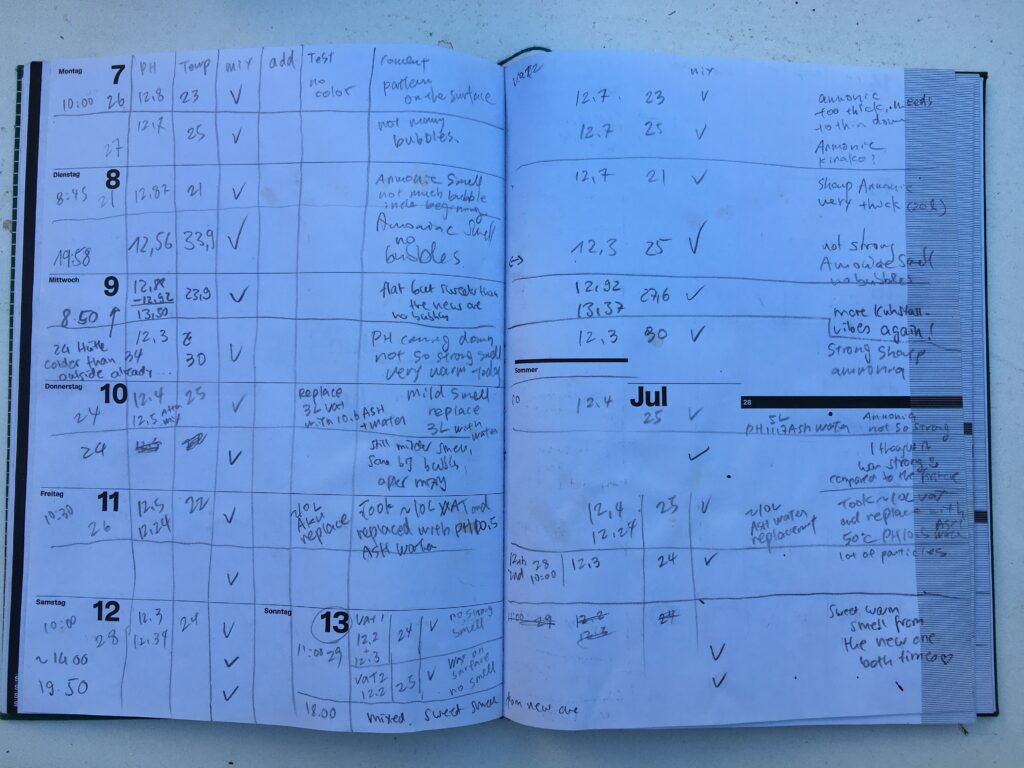 Montag 7 PH Temp mix add Test coment
10:00 26 12,8 23 ✓ no color
on the surface
27 12,7 25 ✓ not many
bubbles.
Dienstag 8
8:45 21 12,87 21 ✓ Ammonic Smell
not much bubble
beginning
19:58 12,56 33,9 ✓ Amoniac smell
no
bubbles.
Mittwoch 9
8.50 12,88
-12,92
13,50 23,9 ✓ flat but
than
the new one
no
24 Hütte
colder than 34
outside already...
12,3 30 ✓ PH coming down
not so strong smell
very warm today
Donnerstag 10
24 12.4 25 ✓
12,5 After mix
Replace
3L vat
with 10.6 ASH
+ water
mild smell
replace
3L with
water
24 ✓ still milder smell,
some big
after mixing
Freitag 11
10:30 26 12,5 22 ✓
12,24
~10L
replace
Took ~10L VAT and
replaced with PH10.5
ASH water
✓
Samstag 12
10:00 28 12.3 24 ✓
12,34
~14.00 ✓
19.50 ✓
Sonntag 13
11:00 29
VaT1
12.2
+
12.3 24 ✓ no strong
smell
VaT2
12.2 25 ✓ wax on
surface
no smell
18.00 mixed. Sweet smell from new one
VaT2 mix
12,7. 23 ✓ ammonic
too thick, needs
to thin down
12.7 25 ✓ Ammonic
12,7 21 ✓ Sharp Ammonic
very thick
12.3 25 ✓ not strong
smell
no bubbles
12,92
13,37 27,6 ✓ more Kuhstall-
vibes again!
12.3 30 ✓ Strong sharp
ammonia
Sommer
Jul
28
12.4 25 ✓ 5L
PH11.7 Ash water
Ammonia
not so strong
✓ I thought it
was strong
compared to the
12,4 25 ✓
12,24
~10L
ASH water
replacement
Took ~10L vat
and replace with
50°C PH10.5 ASH
lot of particles
12th 28
2nd 10:00 12.3 24 ✓
11:00 29 12.2
12.3 24
✓
✓
Sweet warm
smell from
the new one
both times ♡